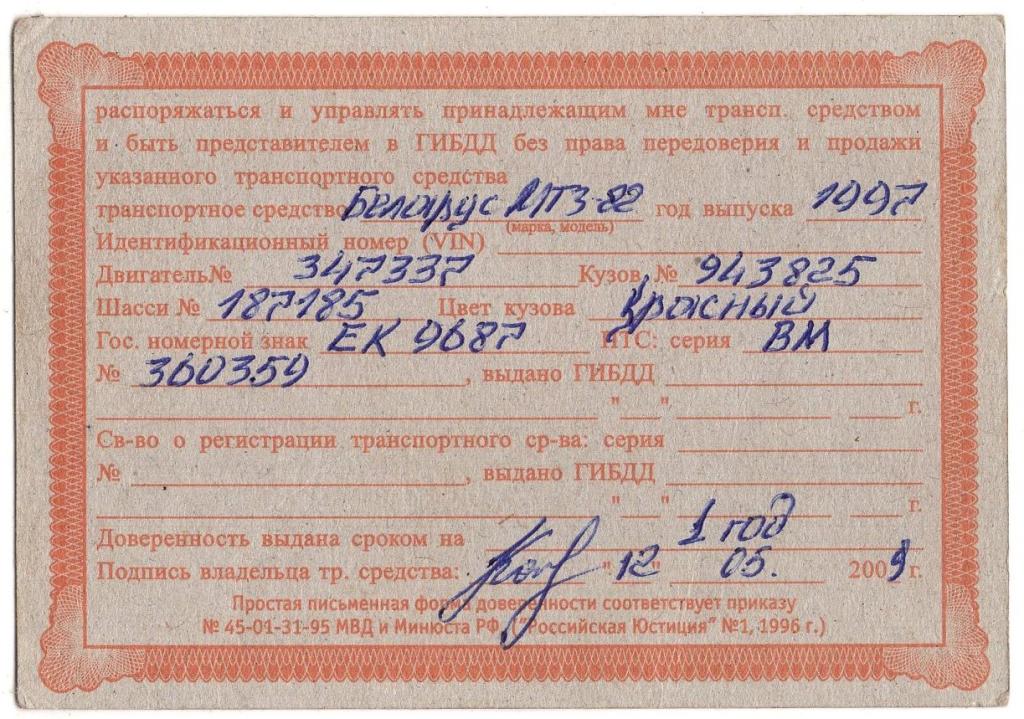 распоряжаться и управлять принадлежащим мне трансп. средством
и быть представителем в ГИБДД без права передоверия и продажи
указанного транспортного средства
транспортное средство Беларус МТЗ-82 год выпуска 1997
(марка, модель)
Идентификационный номер (VIN)
Двигатель№ 347337 Кузов № 943825
Шасси № 187185 Цвет кузова Красный
Гос. номерной знак ЕК 9687 ПТС: серия ВМ
№ 360359, выдано ГИБДД
"__" г.
Св-во о регистрации транспортного ср-ва: серия
№ , выдано ГИБДД
"__" г.
Доверенность выдана сроком на 1 год
Подпись владельца тр. средства: "12" 05. 2009 г.
Простая письменная форма доверенности соответствует приказу
№ 45-01-31-95 МВД и Минюста РФ. ("Российская Юстиция" №1, 1996 г.)